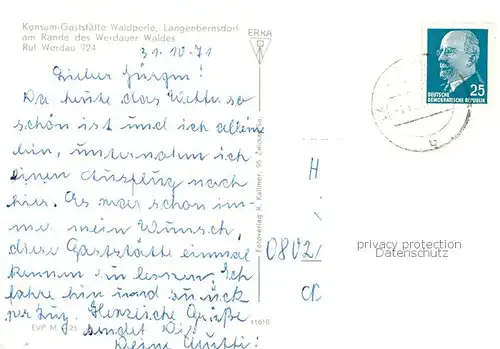 Konsum-Gaststätte Waldperle, Langenbernsdorf
am Rande des Werdauer Waldes
Ruf Werdau 724
31.10.71
ERKA
Lieber Jürgen!
Da heute das Wetter so
schön ist und ich allein
bin, unternahm ich
einen Ausflug nach
hier. Es war schon im-
mer mein Wunsch,
diese Gaststätte einmal
kennen zu lernen. Ich
fahre hin und zurück
per Zug. Herzliche Grüße
sendet Dir
Deine Mutti!
EVP M 25
11610
Fotoverlag R. Kallmer, 95 Zwickau
25
DEUTSCHE
DEMOKRATISCHE REPUBLIK
H
0802
privacy protection
Datenschutz